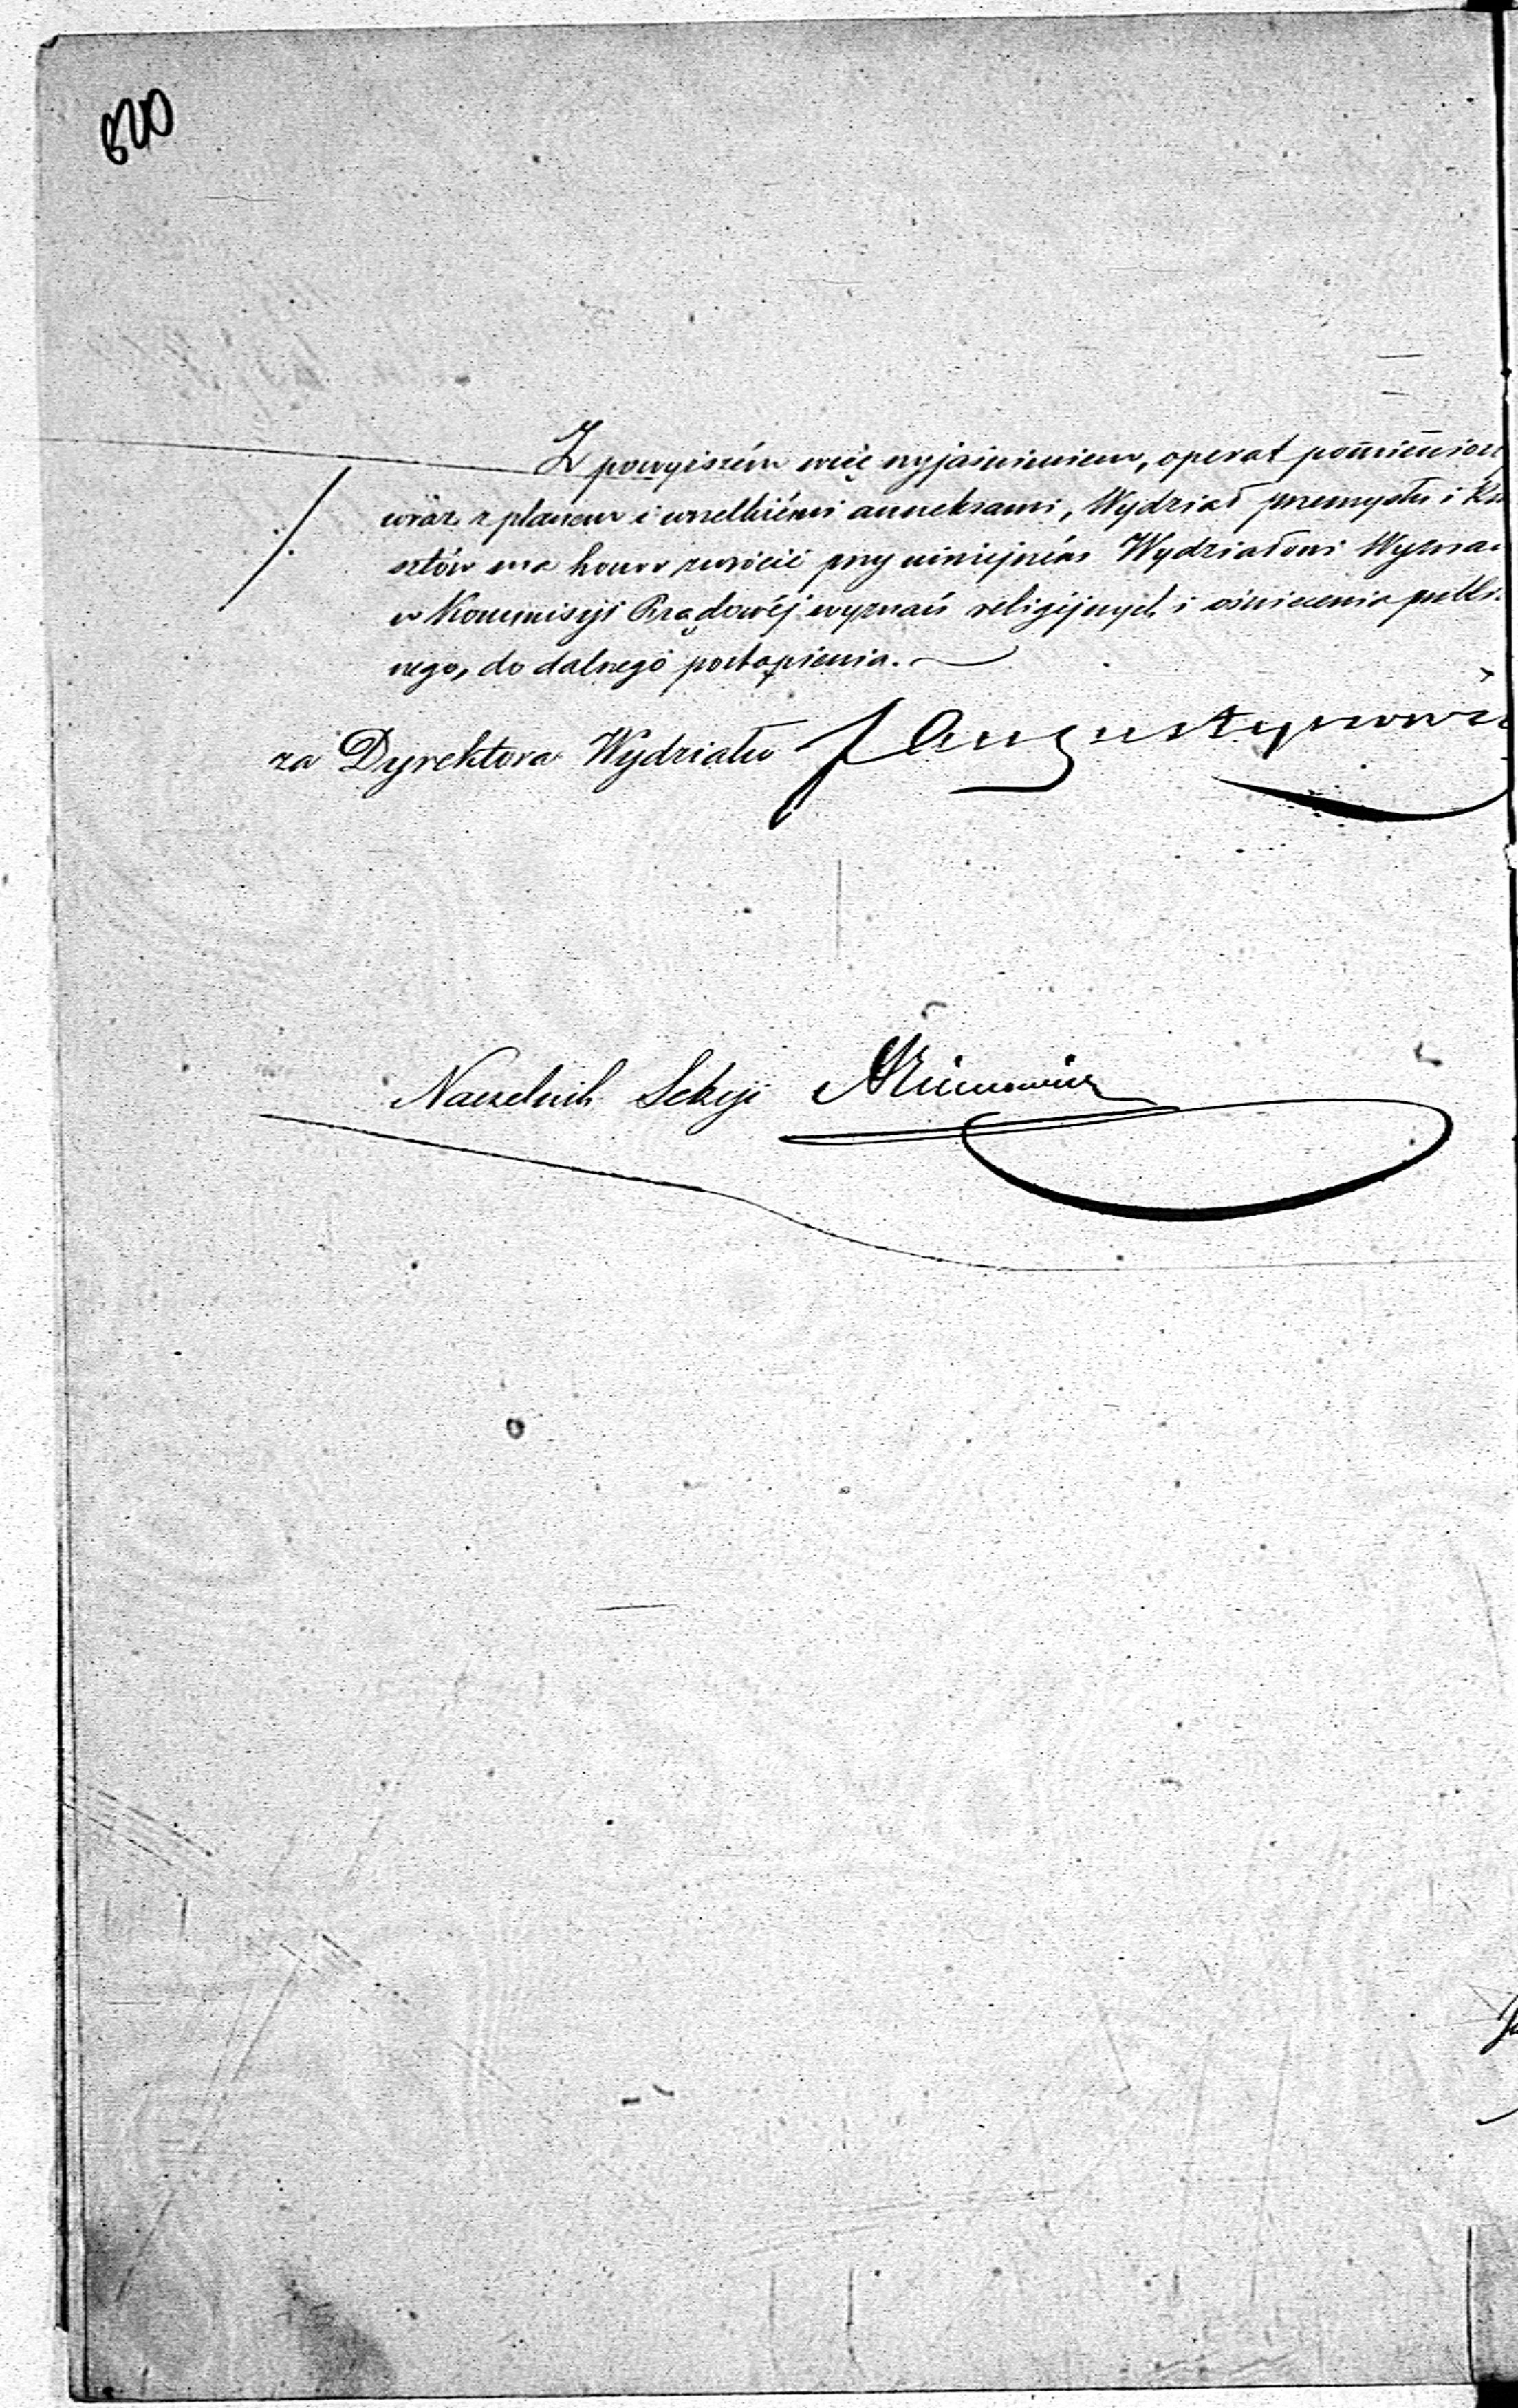 620
Z powyższém więc wyjaśnieniem, operat pomienion
wraz z planem i wszelkiémi anneksami, Wydział przemysłu i Ku
sztów ma honor zwrócić przy niniejszém Wydziałowi Wyznań
w Kommisyi Rządowéj wyznań religijnych i oświecenia publi
nego, do dalszego postąpienia.
za Dyrektora Wydziału J Augustynowi
Naczelnik Sekcyi